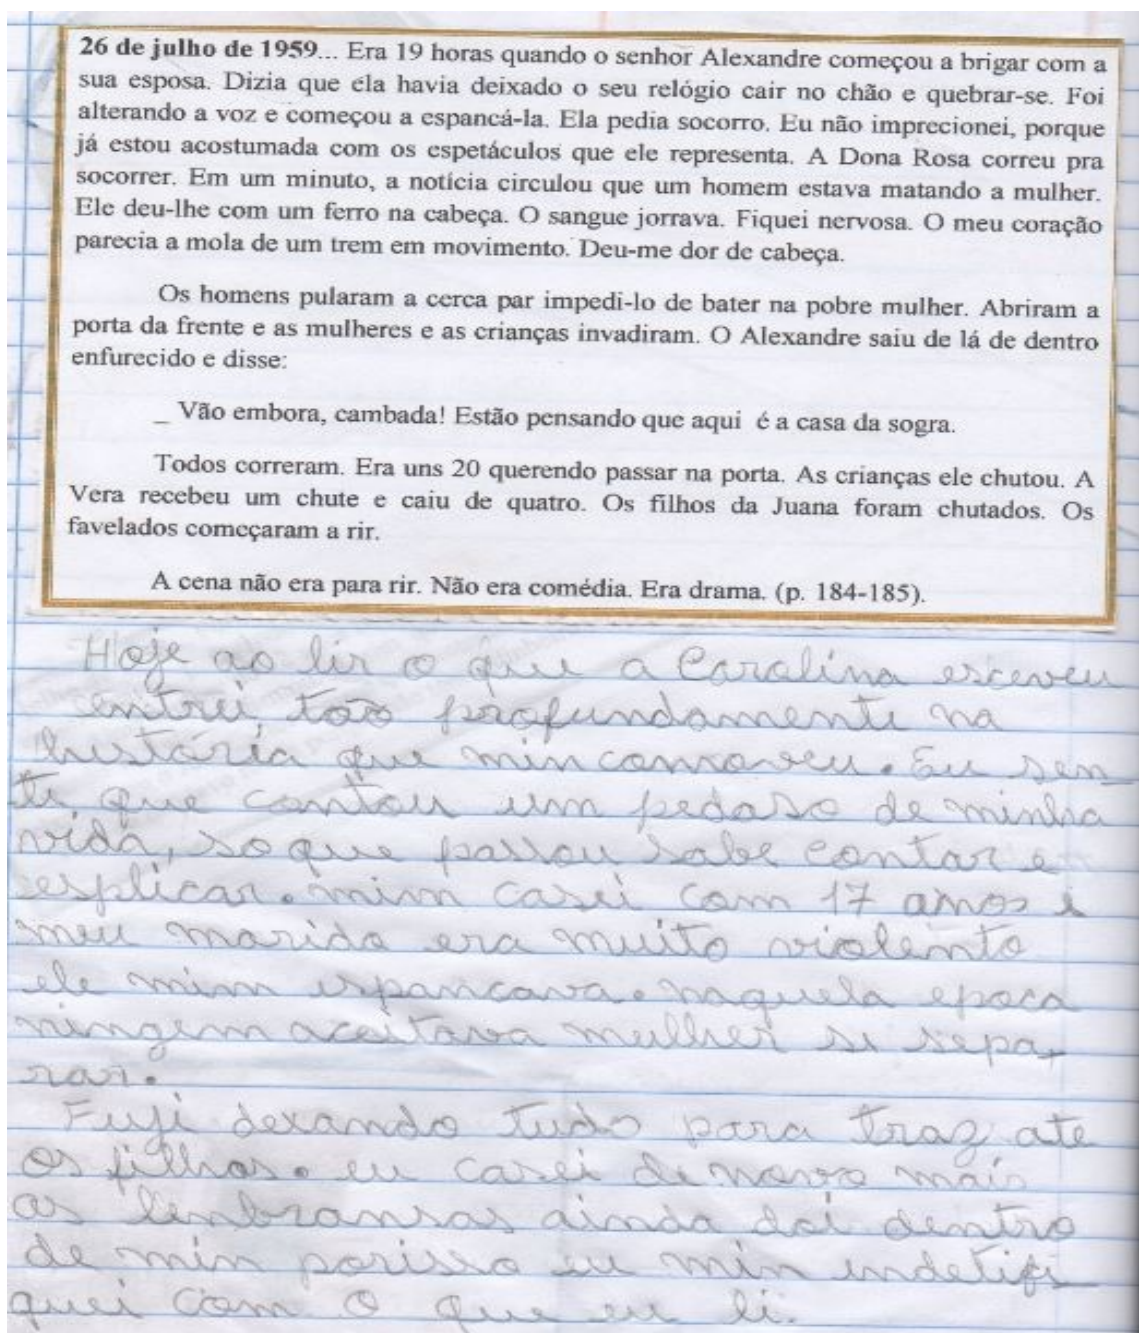 26 de julho de 1959... Era 19 horas quando o senhor Alexandre começou a brigar com a
sua esposa. Dizia que ela havia deixado o seu relógio cair no chão e quebrar-se. Foi
alterando a voz e começou a espancá-la. Ela pedia socorro. Eu não imprecionei, porque
já estou acostumada com os espetáculos que ele representa. A Dona Rosa correu pra
socorrer. Em um minuto, a notícia circulou que um homem estava matando a mulher.
Ele deu-lhe com um ferro na cabeça. O sangue jorrava. Fiquei nervosa. O meu coração
parecia a mola de um trem em movimento. Deu-me dor de cabeça.
Os homens pularam a cerca par impedi-lo de bater na pobre mulher. Abriram a
porta da frente e as mulheres e as crianças invadiram. O Alexandre saiu de lá de dentro
enfurecido e disse:
_ Vão embora, cambada! Estão pensando que aqui é a casa da sogra.
Todos correram. Era uns 20 querendo passar na porta. As crianças ele chutou. A
Vera recebeu um chute e caiu de quatro. Os filhos da Juana foram chutados. Os
favelados começaram a rir.
A cena não era para rir. Não era comédia. Era drama. (p. 184-185).
Hoje ao lir o que a Carolina esceveu
entrei tão profundamente na
histária que min comoveu. Eu sen
ti que contou um pedaso de minha
vida, so que passou sabe contar e
esplicar. mim casei com 17 anos i
meu marido era muito violento
ele mim espancava. naquela epoca
ningem aceitava mulher si sepa-
rar.
Fuji dexando tudo para traz ate
os filhos. eu casei de novo mais
as lembransas ainda doi dentro
de min porisso eu min indetifi
quei com o que eu li.